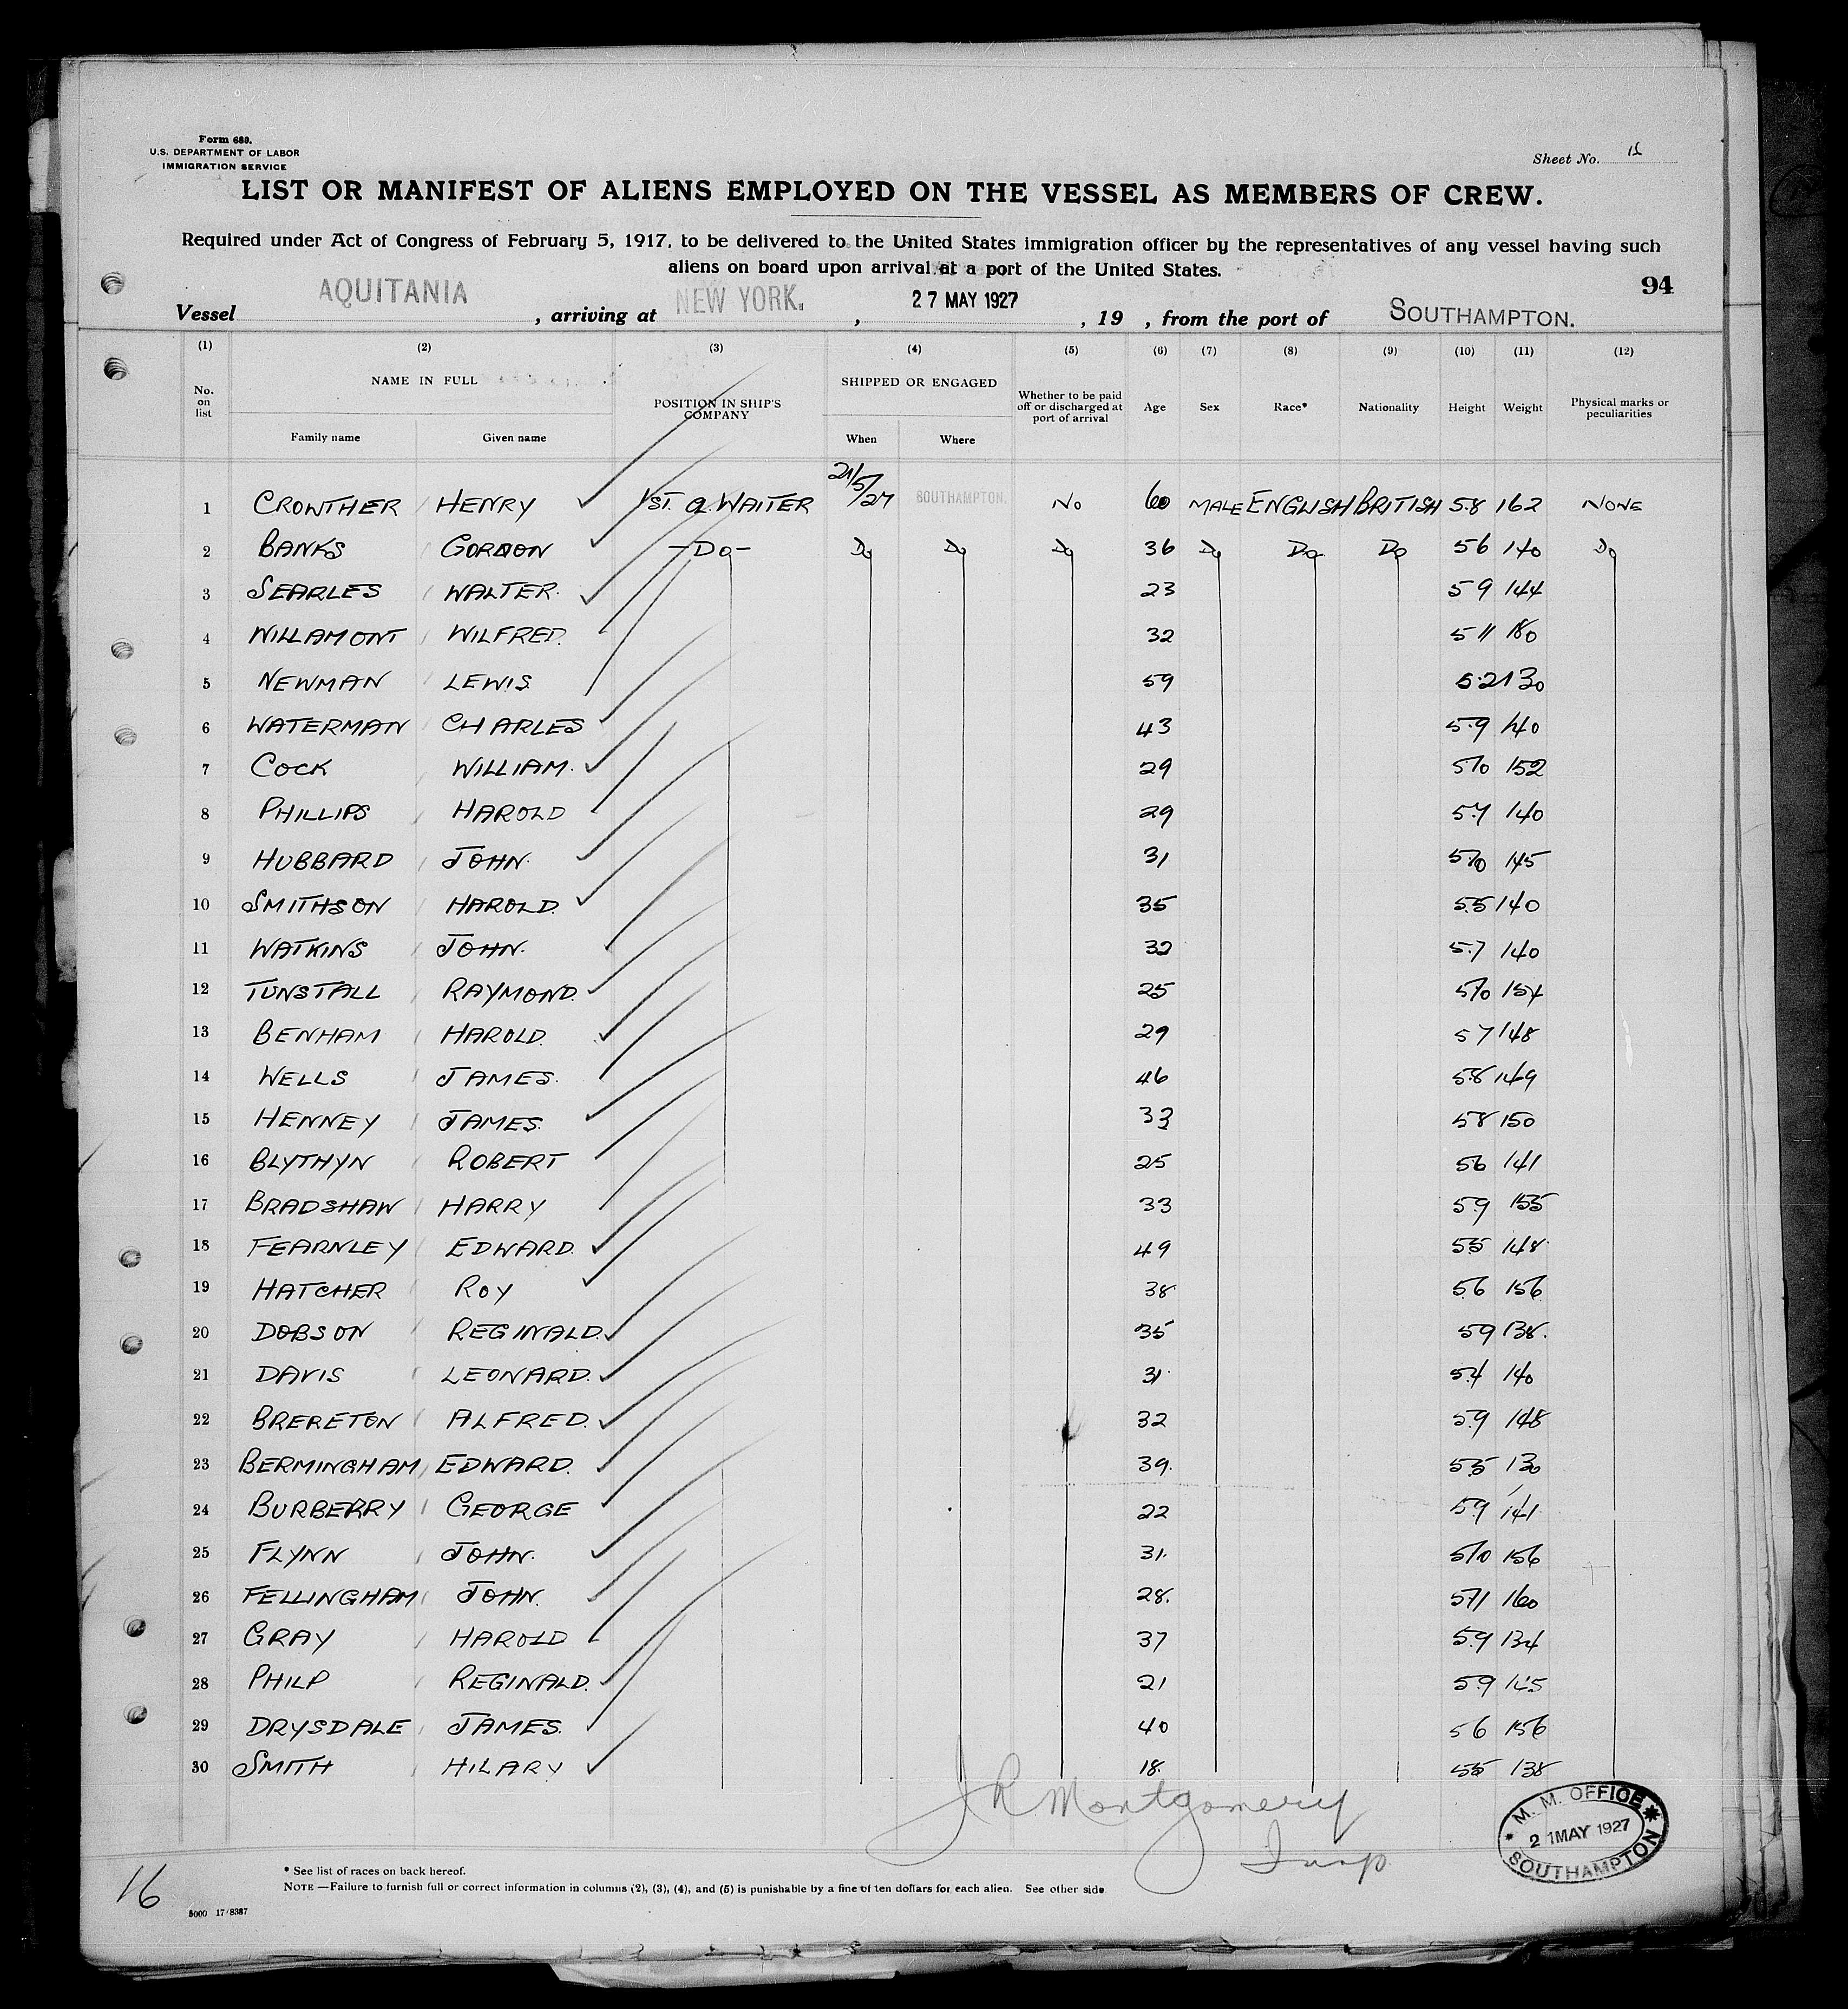 Form 680.
U.S. DEPARTMENT OF LABOR
IMMIGRATION SERVICE
Sheet No.
LIST OR MANIFEST OF ALIENS EMPLOYED ON THE VESSEL AS MEMBERS OF CREW.
Required under Act of Congress of February 5, 1917, to be delivered to the United States immigration officer by the representatives of any vessel having such
aliens on board upon arrival at a port of the United States.
94
Vessel AQUITANIA, arriving at NEW YORK., 27 MAY 1927, 19 , from the port of SOUTHAMPTON.
(1) (2) (3) (4) (5) (6) (7) (8) (9) (10) (11) (12)
No. on list NAME IN FULL POSITION IN SHIP'S COMPANY SHIPPED OR ENGAGED Whether to be paid off or discharged at port of arrival Age Sex Race* Nationality Height Weight Physical marks or peculiarities
Family name Given name When Where
1 CROWTHER HENRY 1ST. Q. WAITER 21/5/27 SOUTHAMPTON. No 60 MALE ENGLISH BRITISH 5.8 162 NONE
2 BANKS GORDON -Do- Do Do Do 36 Do Do Do 5 6 140 Do
3 SEARLES WALTER. 23 5 9 144
4 WILLAMONT WILFRED. 32 5 11 180
5 NEWMAN LEWIS 59 5.2 130
6 WATERMAN CHARLES 43 5.9 140
7 COCK WILLIAM. 29 5 10 152
8 PHILLIPS HAROLD 29 5.7 140
9 HUBBARD JOHN. 31 5.10 145
10 SMITHSON HAROLD. 35 5.5 140
11 WATKINS JOHN. 32 5.7 140
12 TUNSTALL RAYMOND. 25 5.10 154
13 BENHAM HAROLD. 29 5 7 148
14 WELLS JAMES. 46 5.8 149
15 HENNEY JAMES. 33 5 8 150
16 BLYTHYN ROBERT 25 5 6 141
17 BRADSHAW HARRY 33 5.9 155
18 FEARNLEY EDWARD. 49 5.5 148
19 HATCHER ROY 38 5.6 156
20 DOBSON REGINALD. 35 5 9 138.
21 DAVIS LEONARD. 31 5.4 140
22 BRERETON ALFRED. 32 5.9 148
23 BERMINGHAM EDWARD. 39. 5.5 130
24 BURBERRY GEORGE 22 5.9 141
25 FLYNN JOHN. 31. 5 10 156
26 FELLINGHAM JOHN. 28. 5 11 160
27 GRAY HAROLD 37 5.9 134
28 PHILP REGINALD. 21 5.9
29 DRYSDALE JAMES. 40 5 6 156
30 SMITH HILARY 18. 5 5 138
J R Montgomery
Insp.
M. M. OFFICE
21 MAY 1927
SOUTHAMPTON
* See list of races on back hereof.
NOTE —Failure to furnish full or correct information in columns (2), (3), (4), and (5) is punishable by a fine of ten dollars for each alien. See other side
16
5000 17/8387